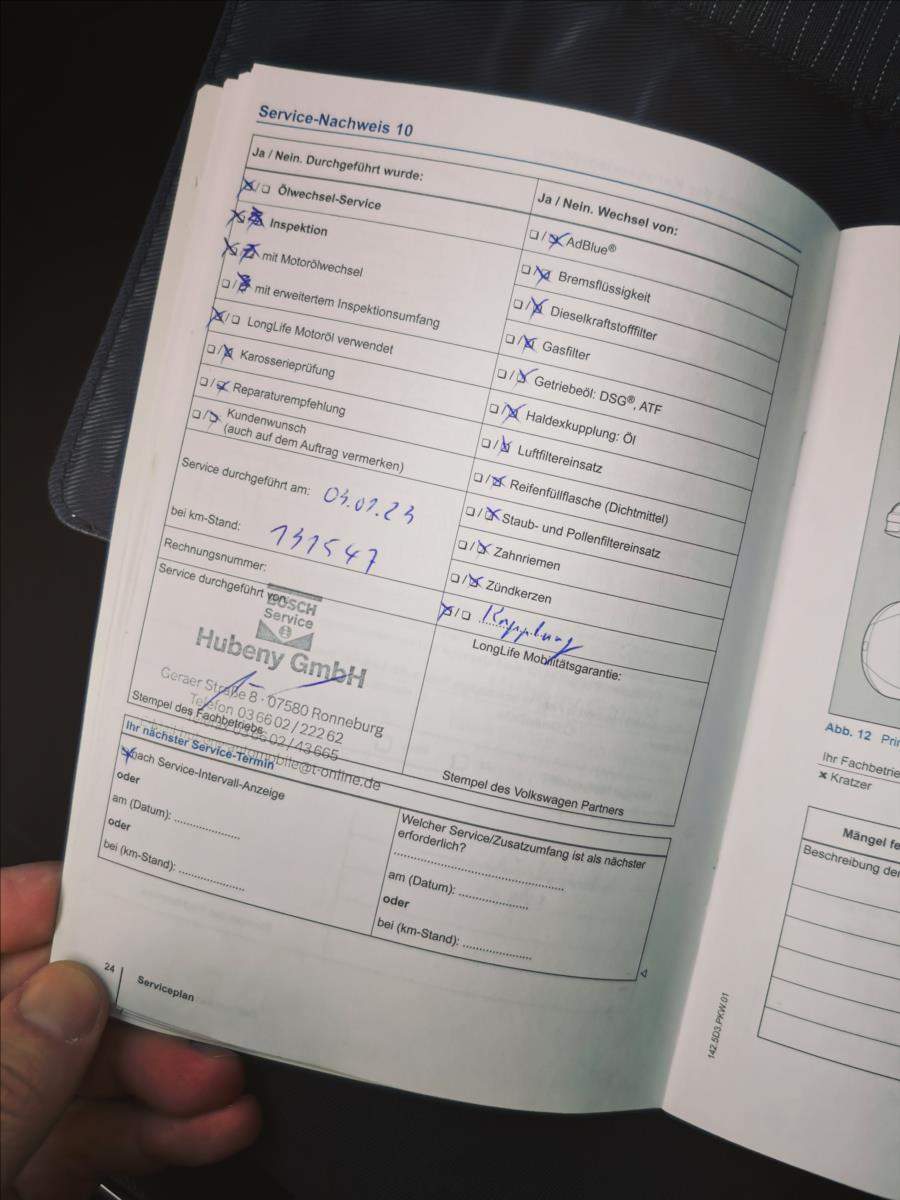 Service-Nachweis 10
Ja / Nein. Durchgeführt wurde:
Ölwechsel-Service
Inspektion
mit Motorölwechsel
mit erweitertem Inspektionsumfang
LongLife Motoröl verwendet
Karosserieprüfung
Reparaturempfehlung
Kundenwunsch
(auch auf dem Auftrag vermerken)
Service durchgeführt am: 03.01.23
bei km-Stand: 131547
Rechnungsnummer:
Service durchgeführt von:
BOSCH
Service
Hubeny GmbH
Geraer Straße 8 · 07580 Ronneburg
Telefon 03 66 02 / 222 62
/ 43 665
automobile@t-online.de
Stempel des Fachbetriebs
Ja / Nein. Wechsel von:
AdBlue®
Bremsflüssigkeit
Dieselkraftstofffilter
Gasfilter
Getriebeöl: DSG®, ATF
Haldexkupplung: Öl
Luftfiltereinsatz
Reifenfüllflasche (Dichtmittel)
Staub- und Pollenfiltereinsatz
Zahnriemen
Zündkerzen
Kupplung
LongLife Mobilitätsgarantie:
Stempel des Volkswagen Partners
Ihr nächster Service-Termin
nach Service-Intervall-Anzeige
oder
am (Datum): ....................
oder
bei (km-Stand): ....................
Welcher Service/Zusatzumfang ist als nächster
erforderlich?
..................................................
am (Datum): ....................
oder
bei (km-Stand): ....................
24
Serviceplan
142.5D3.PKW.01
Abb. 12
Ihr Fachbetrie
× Kratzer
Mängel fe
Beschreibung der